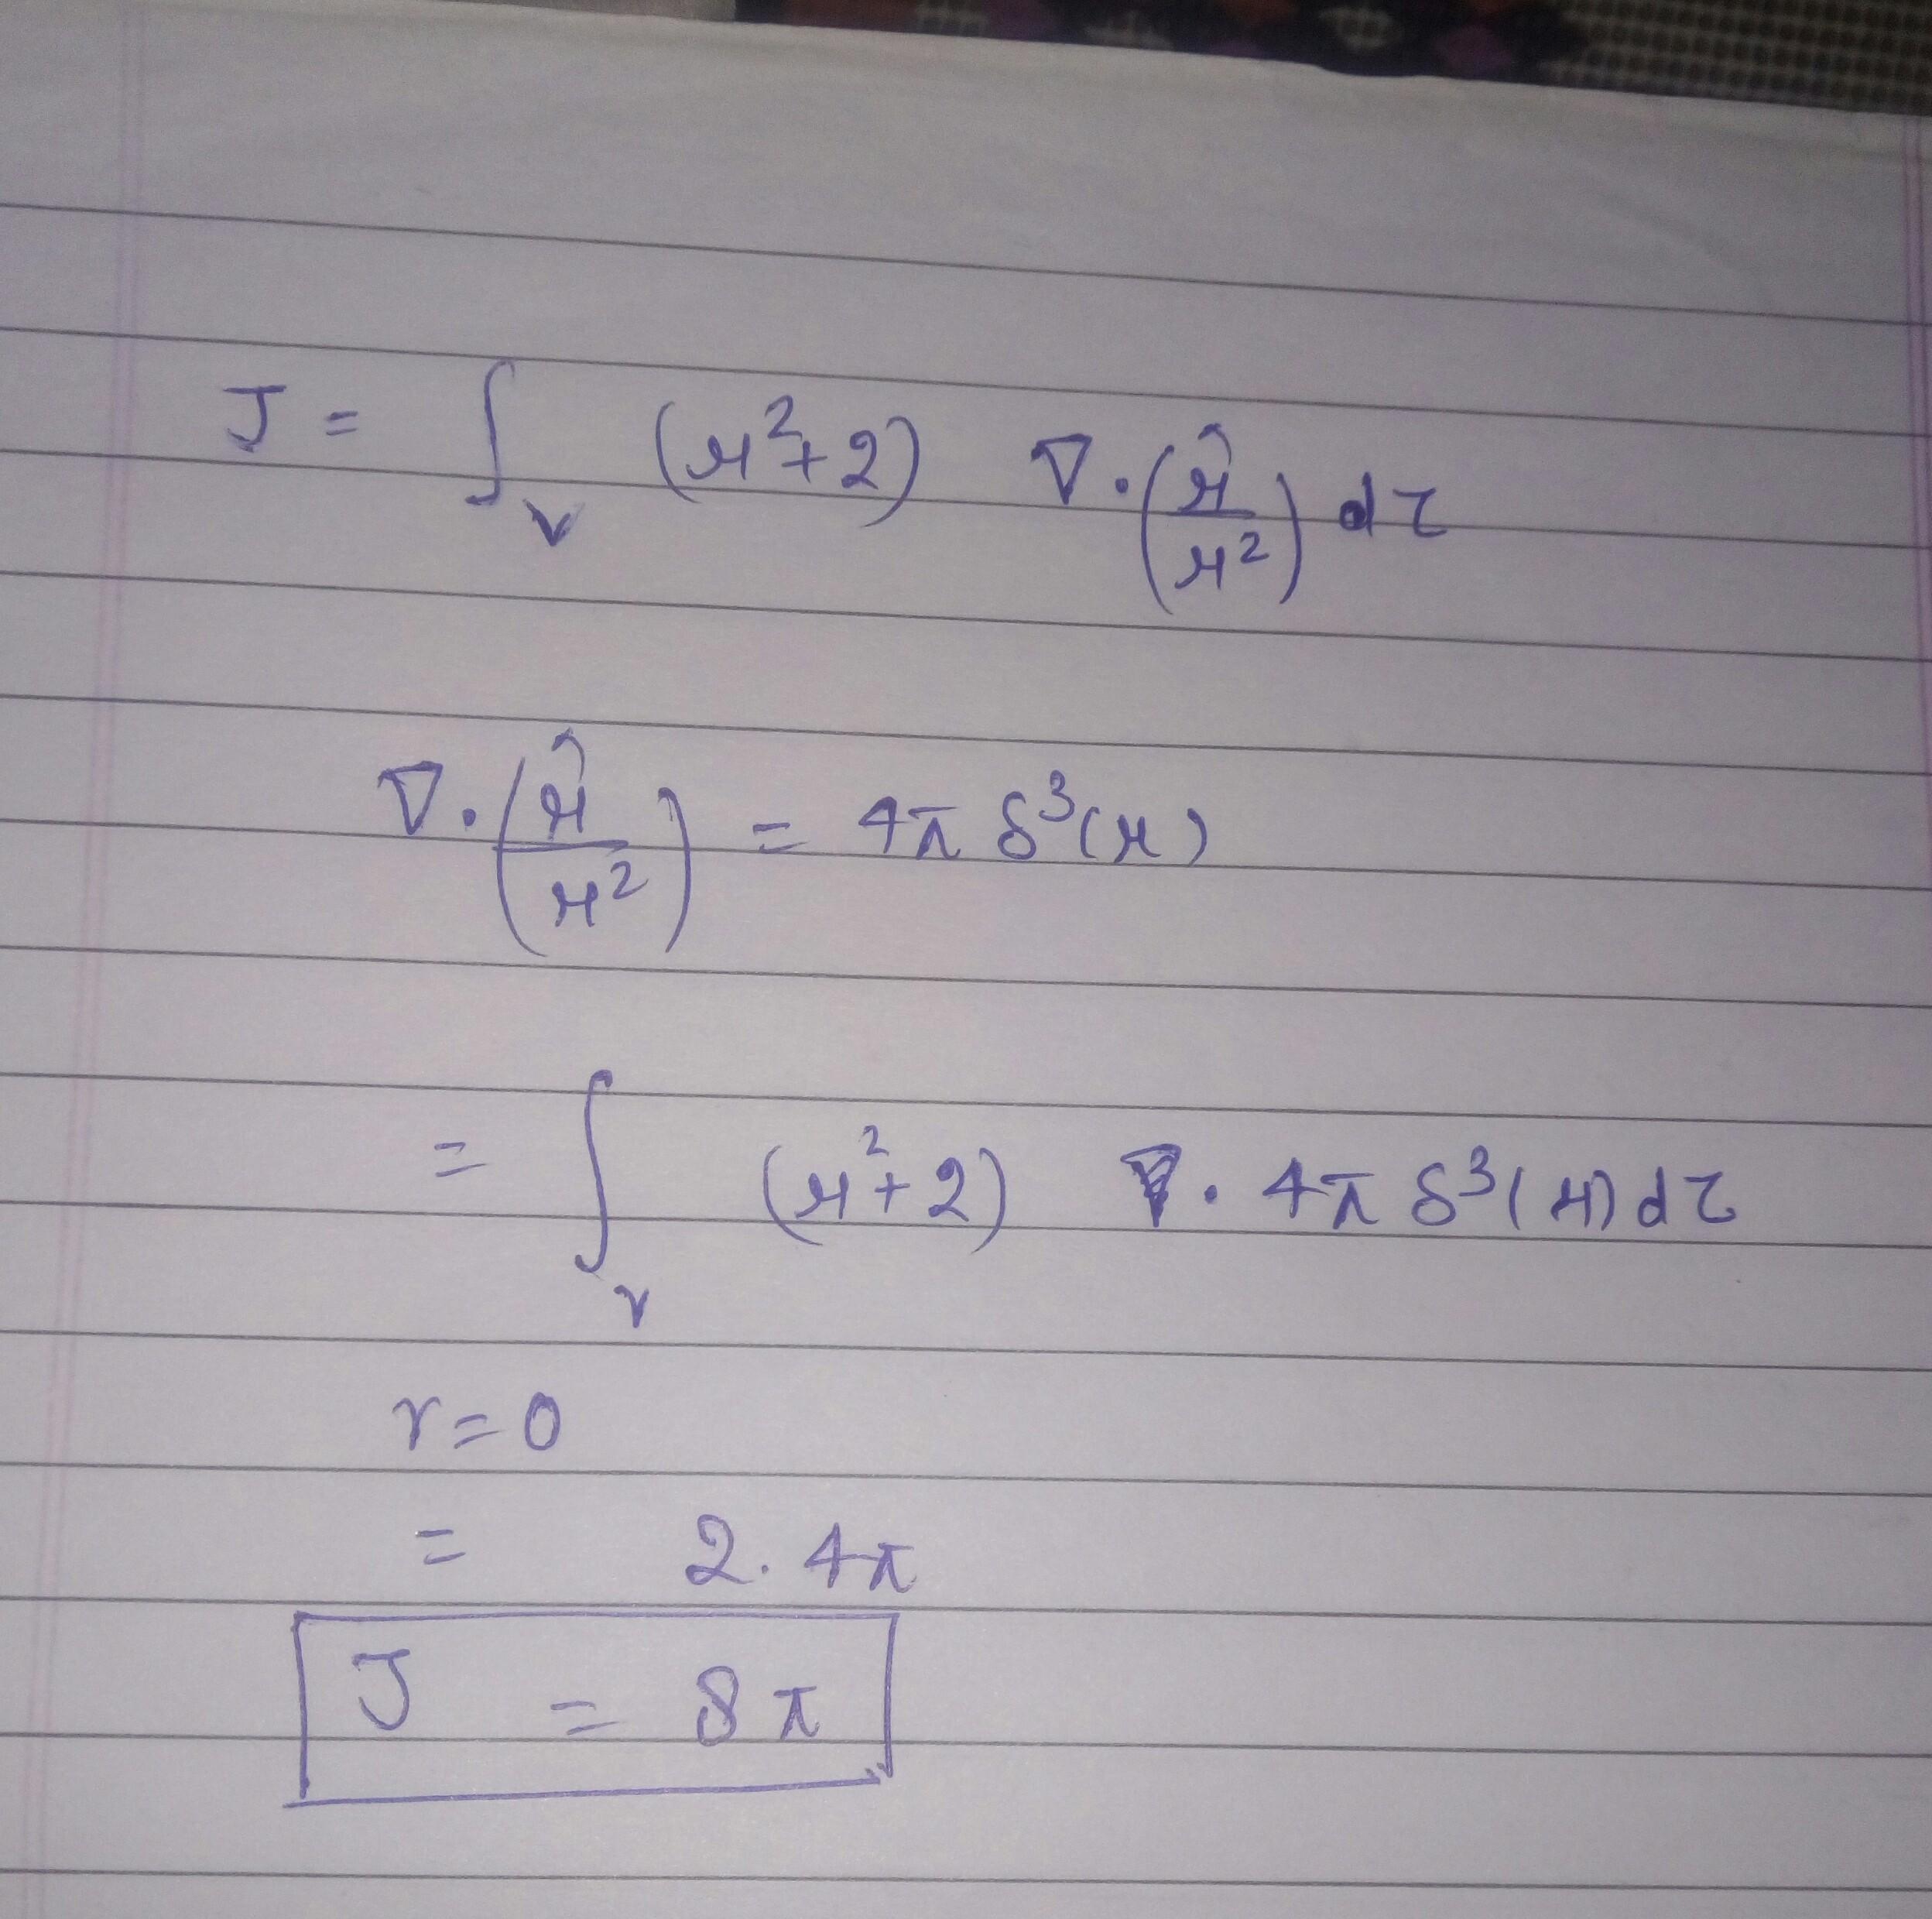 J = ∫_V (r²+2) ∇·(r̂/r²) dτ
∇·(r̂/r²) = 4π δ³(r)
= ∫_V (r²+2) · 4π δ³(r) dτ
r = 0
= 2·4π
J = 8π